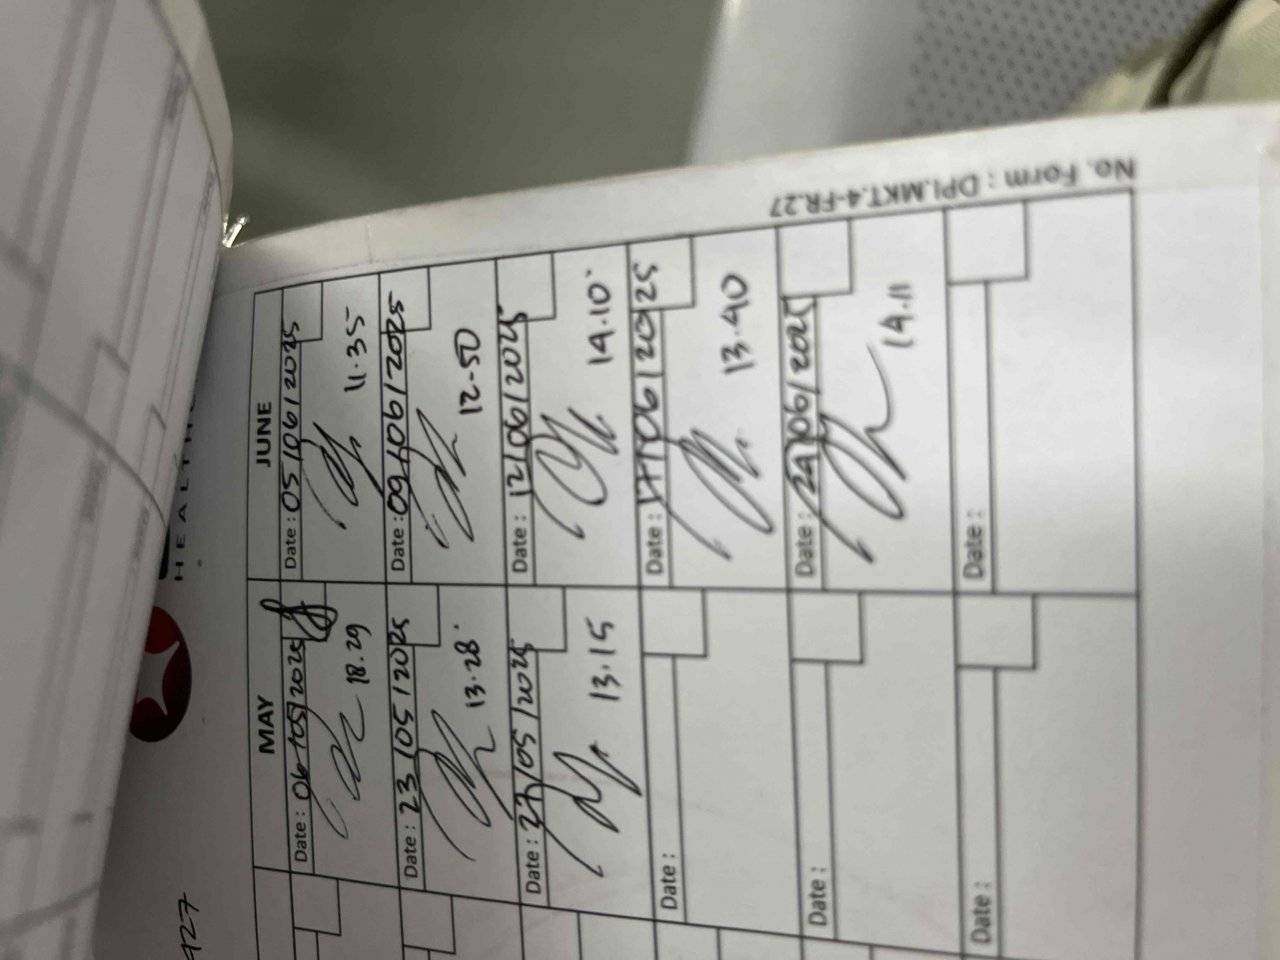 No. Form : DPI.MKT.4-FR.27
HEALTH
927
MAY
JUNE
Date : 06/05/2025
18.29
Date : 05/06/2025
11.35
Date : 23/05/2025
13.28
Date : 09/06/2025
12.50
Date : 27/05/2025
13.15
Date : 12/06/2025
14.10
Date :
Date : 17/06/2025
13.40
Date :
Date : 24/06/2025
14.11
Date :
Date :